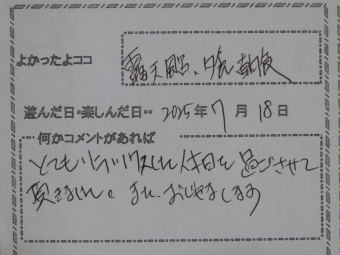 よかったよココ
露天風呂、
遊んだ日・楽しんだ日・・ 2025年7月18日
何かコメントがあれば
とてもリラックスした休日を過ごさせて
頂きました。また、おじゃまします